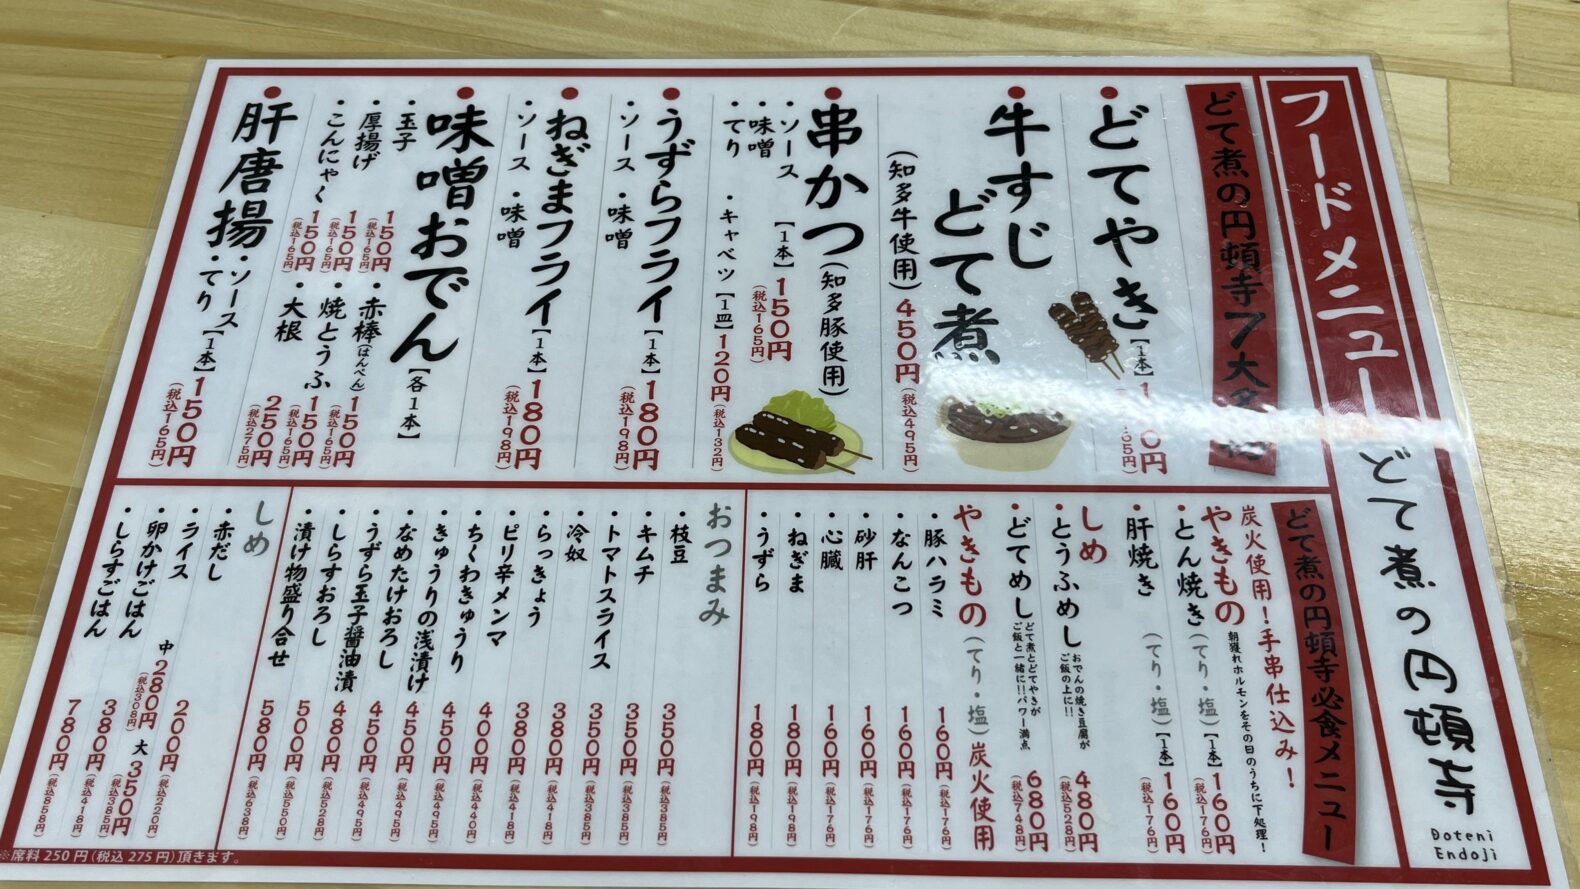 フードメニュー
どて煮の円頓寺
Doteni
Endoji
どて煮の円頓寺7大名物
どてやき【1本】
牛すじ
どて煮
(知多牛使用)450円(税込495円)
串かつ(知多豚使用)
・ソース
・味噌
・てり
【1本】150円
(税込165円)
・キャベツ【1皿】120円(税込132円)
うずらフライ【1本】180円(税込198円)
・ソース・味噌
ねぎまフライ【1本】180円(税込198円)
・ソース・味噌
味噌おでん【各1本】
・玉子 150円(税込165円)
・厚揚げ 150円(税込165円)
・こんにゃく 150円(税込165円)
・赤棒(はんぺん)150円(税込165円)
・焼とうふ 150円(税込165円)
・大根 250円(税込275円)
肝唐揚・ソース・てり【1本】150円(税込165円)
どて煮の円頓寺必食メニュー
炭火使用!手串仕込み!
やきもの 朝獲れホルモンをその日のうちに下処理!
・とん焼き(てり・塩)【1本】160円(税込176円)
・肝焼き(てり・塩)【1本】160円(税込176円)
しめ
・とうふめし おでんの焼き豆腐がご飯の上に!! 480円(税込528円)
・どてめし どて煮とどてやきがご飯と一緒に!!パワー満点 680円(税込748円)
やきもの(てり・塩)炭火使用
・豚ハラミ 160円(税込176円)
・なんこつ 160円(税込176円)
・砂肝 160円(税込176円)
・心臓 160円(税込176円)
・ねぎま 180円(税込198円)
・うずら 180円(税込198円)
おつまみ
・枝豆 350円(税込385円)
・キムチ 350円(税込385円)
・トマトスライス 350円(税込385円)
・冷奴 380円(税込418円)
・らっきょう 380円(税込418円)
・ピリ辛メンマ 400円(税込440円)
・ちくわきゅうり 450円(税込495円)
・きゅうりの浅漬け 450円(税込495円)
・なめたけおろし 450円(税込495円)
・うずら玉子醤油漬 480円(税込528円)
・しらすおろし 500円(税込550円)
・漬け物盛り合せ 580円(税込638円)
しめ
・赤だし 200円(税込220円)
・ライス 中280円(税込308円) 大350円(税込385円)
・卵かけごはん 380円(税込418円)
・しらすごはん 780円(税込858円)
※席料250円(税込275円)頂きます。